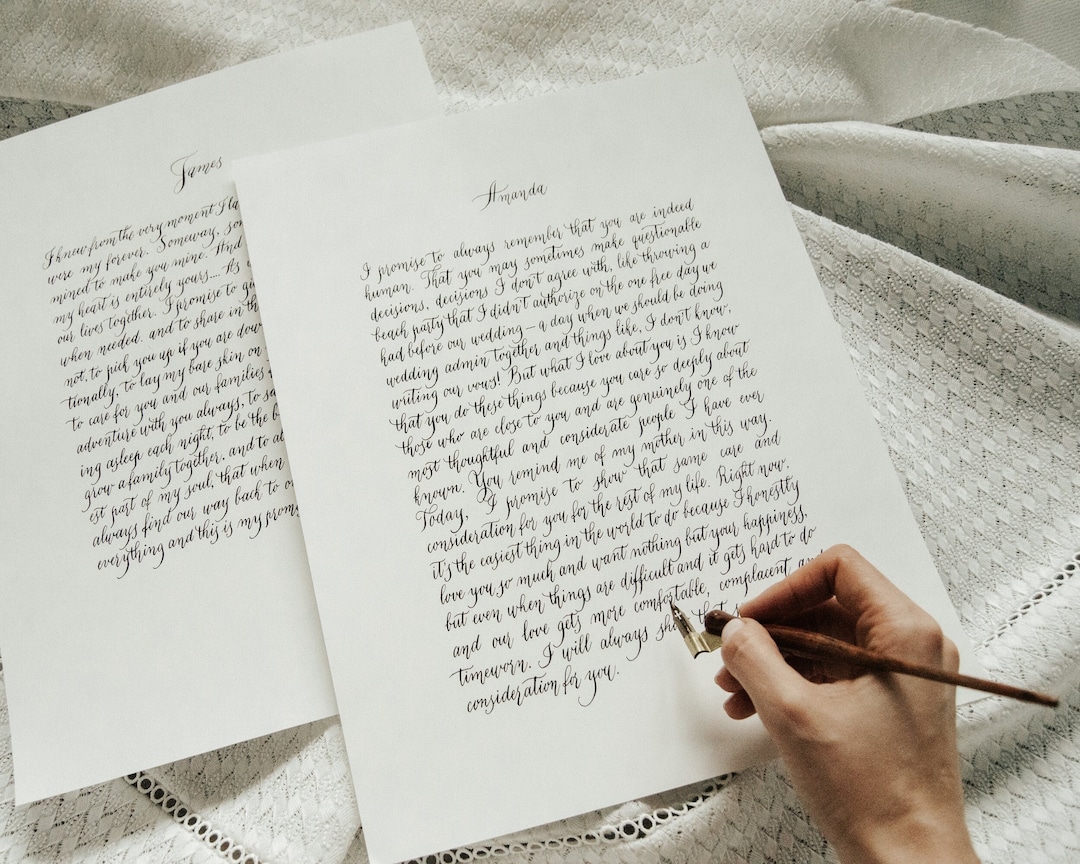 James
I knew from the very moment I la
were my forever. Someway, som
mined to make you mine. And
my heart is entirely yours.... Its
our lives together. I promise to gi
when needed. and to share in th
not, to pick you up if you are dow
tionally, to lay my bare skin on
to care for you and our families
adventure with you always, to sa
ing asleep each night, to be the b
grow a family together, and to al
est part of my soul, that when
always find our way back to o
everything and this is my promi
Amanda
I promise to always remember that you are indeed
human. That you may sometimes make questionable
decisions, decisions I don't agree with, like throwing a
beach party that I didn't authorize on the one free day we
had before our wedding – a day when we should be doing
wedding admin together and things like, I don't know,
writing our vows! But what I love about you is I know
that you do these things because you care so deeply about
those who are close to you and are genuinely one of the
most thoughtful and considerate people I have ever
known. You remind me of my mother in this way.
Today, I promise to show that same care and
consideration for you for the rest of my life. Right now,
it's the easiest thing in the world to do because I honestly
love you so much and want nothing but your happiness,
but even when things are difficult and it gets hard to do
and our love gets more comfortable, complacent and
timeworn. I will always that
consideration for you.